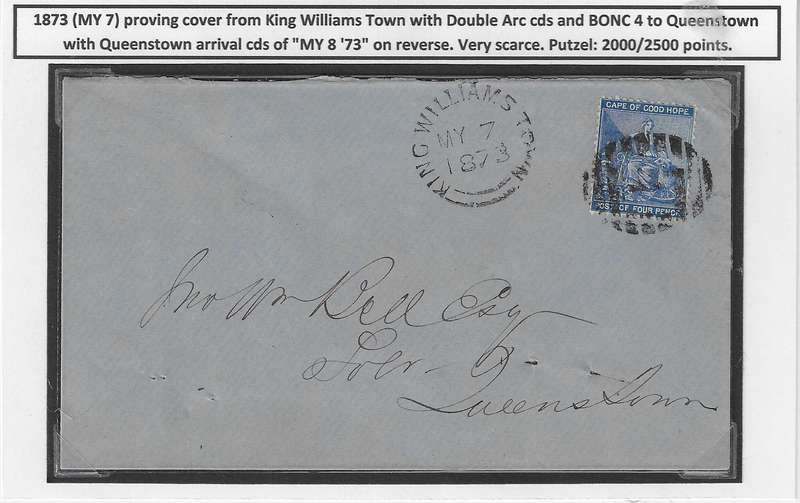 1873 (MY 7) proving cover from King Williams Town with Double Arc cds and BONC 4 to Queenstown
with Queenstown arrival cds of "MY 8 '73" on reverse. Very scarce. Putzel: 2000/2500 points.
KING WILLIAMS TOWN
MY 7
1873
CAPE OF GOOD HOPE
POSTAGE FOUR PENCE
Jno Wm Bell Esq
Solr
Queenstown